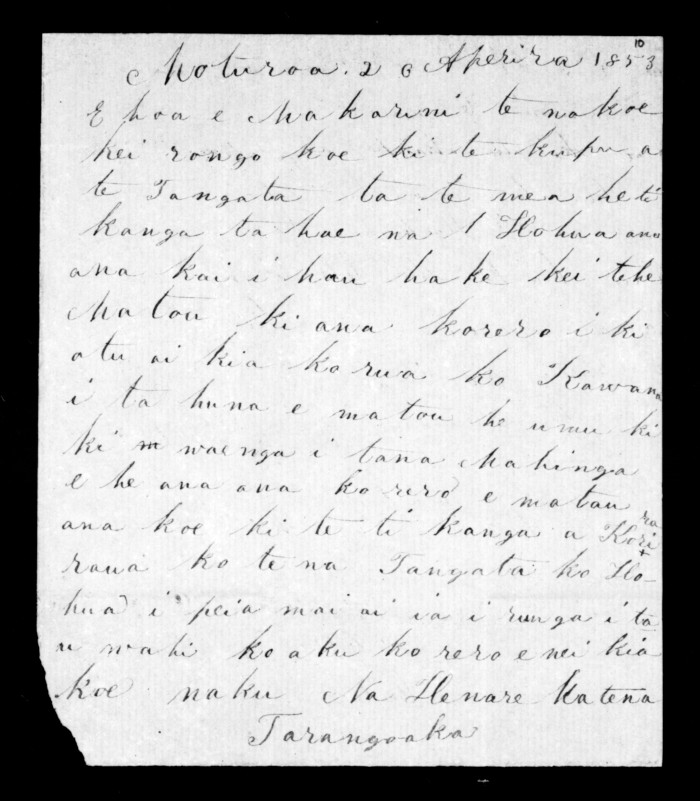 10
Moturoa. 26 Aperira 1853
E hoa e Makarini te na koe
kei rongo koe ki te kupu a
te Tangata ta te mea he ti
kanga ta hae na / Hohua ano
ana kai i hau ha ke kei tehe
Matou ki ana korero i ki
atu ai kia ko rua ko Kawana
i ta huna e matou he umu ki
ki waenga i tana Mahinga
e he ana ana ko rero e matau
ana koe ki te ti kanga a Kori
ra
raua ko te na Tangata ko Ho-
hua i peia mai ai ia i runga i ta
u wahi ko aku ko rero e nei kia
koe naku Na Henare Katena
Tarangoaka